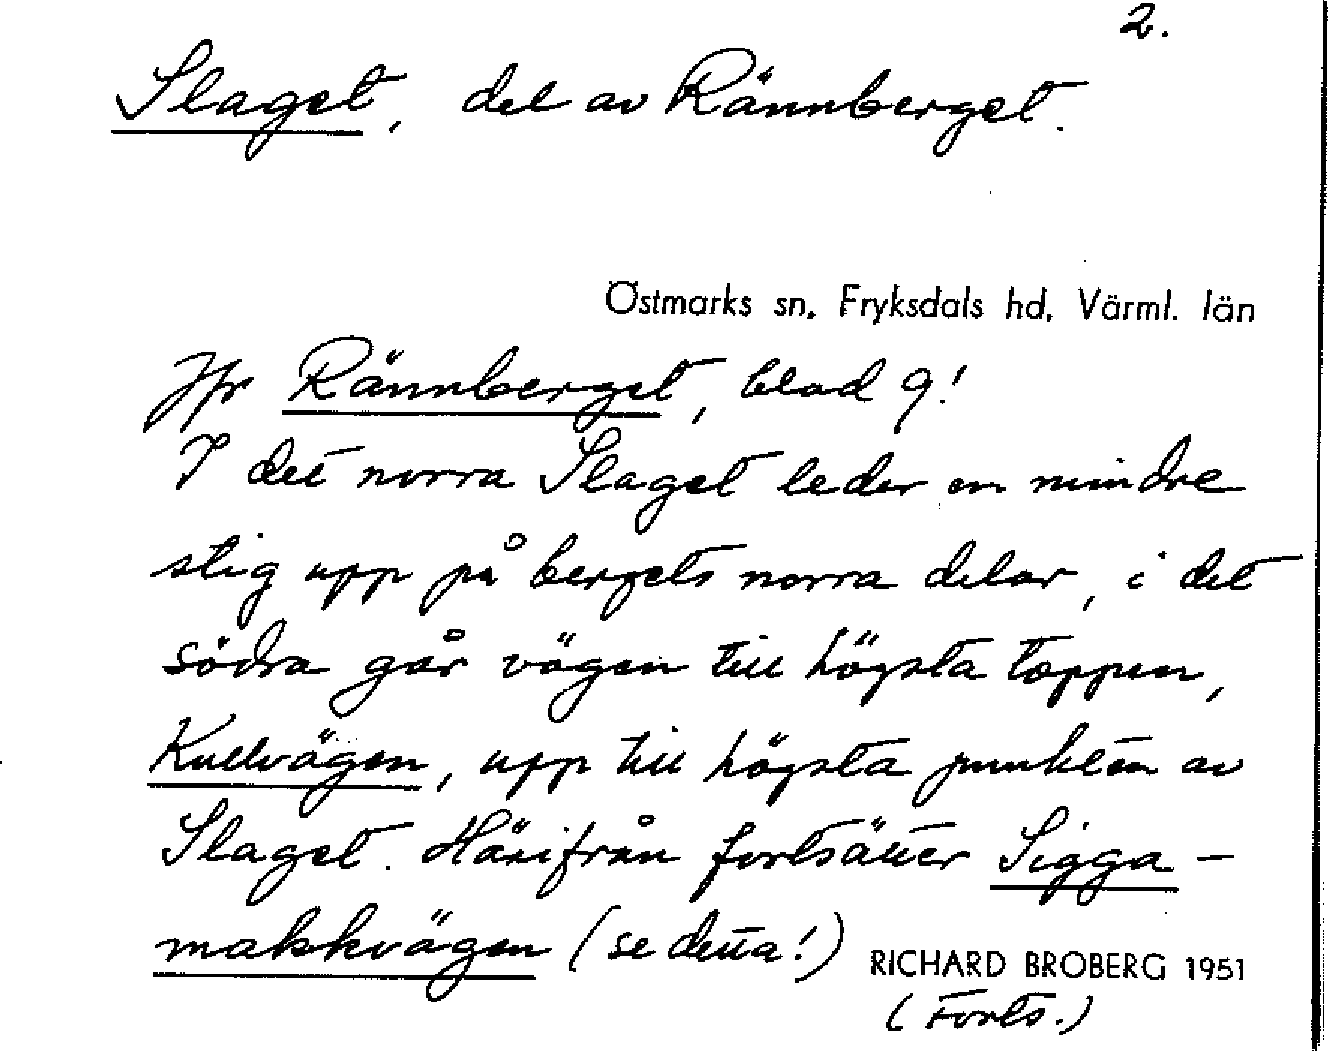 2.
Slaget, del av Rännberget.
Östmarks sn, Fryksdals hd, Värml. län
Jfr Rännberget, blad 9!
I det norra Slaget leder en mindre
stig upp på bergets norra delar, i det
södra går vägen till högsta toppen,
Kullvägen, upp till högsta punkten av
Slaget. Härifrån fortsätter Sigga-
makkvägen (se detta!)
RICHARD BROBERG 1951
(Forts.)